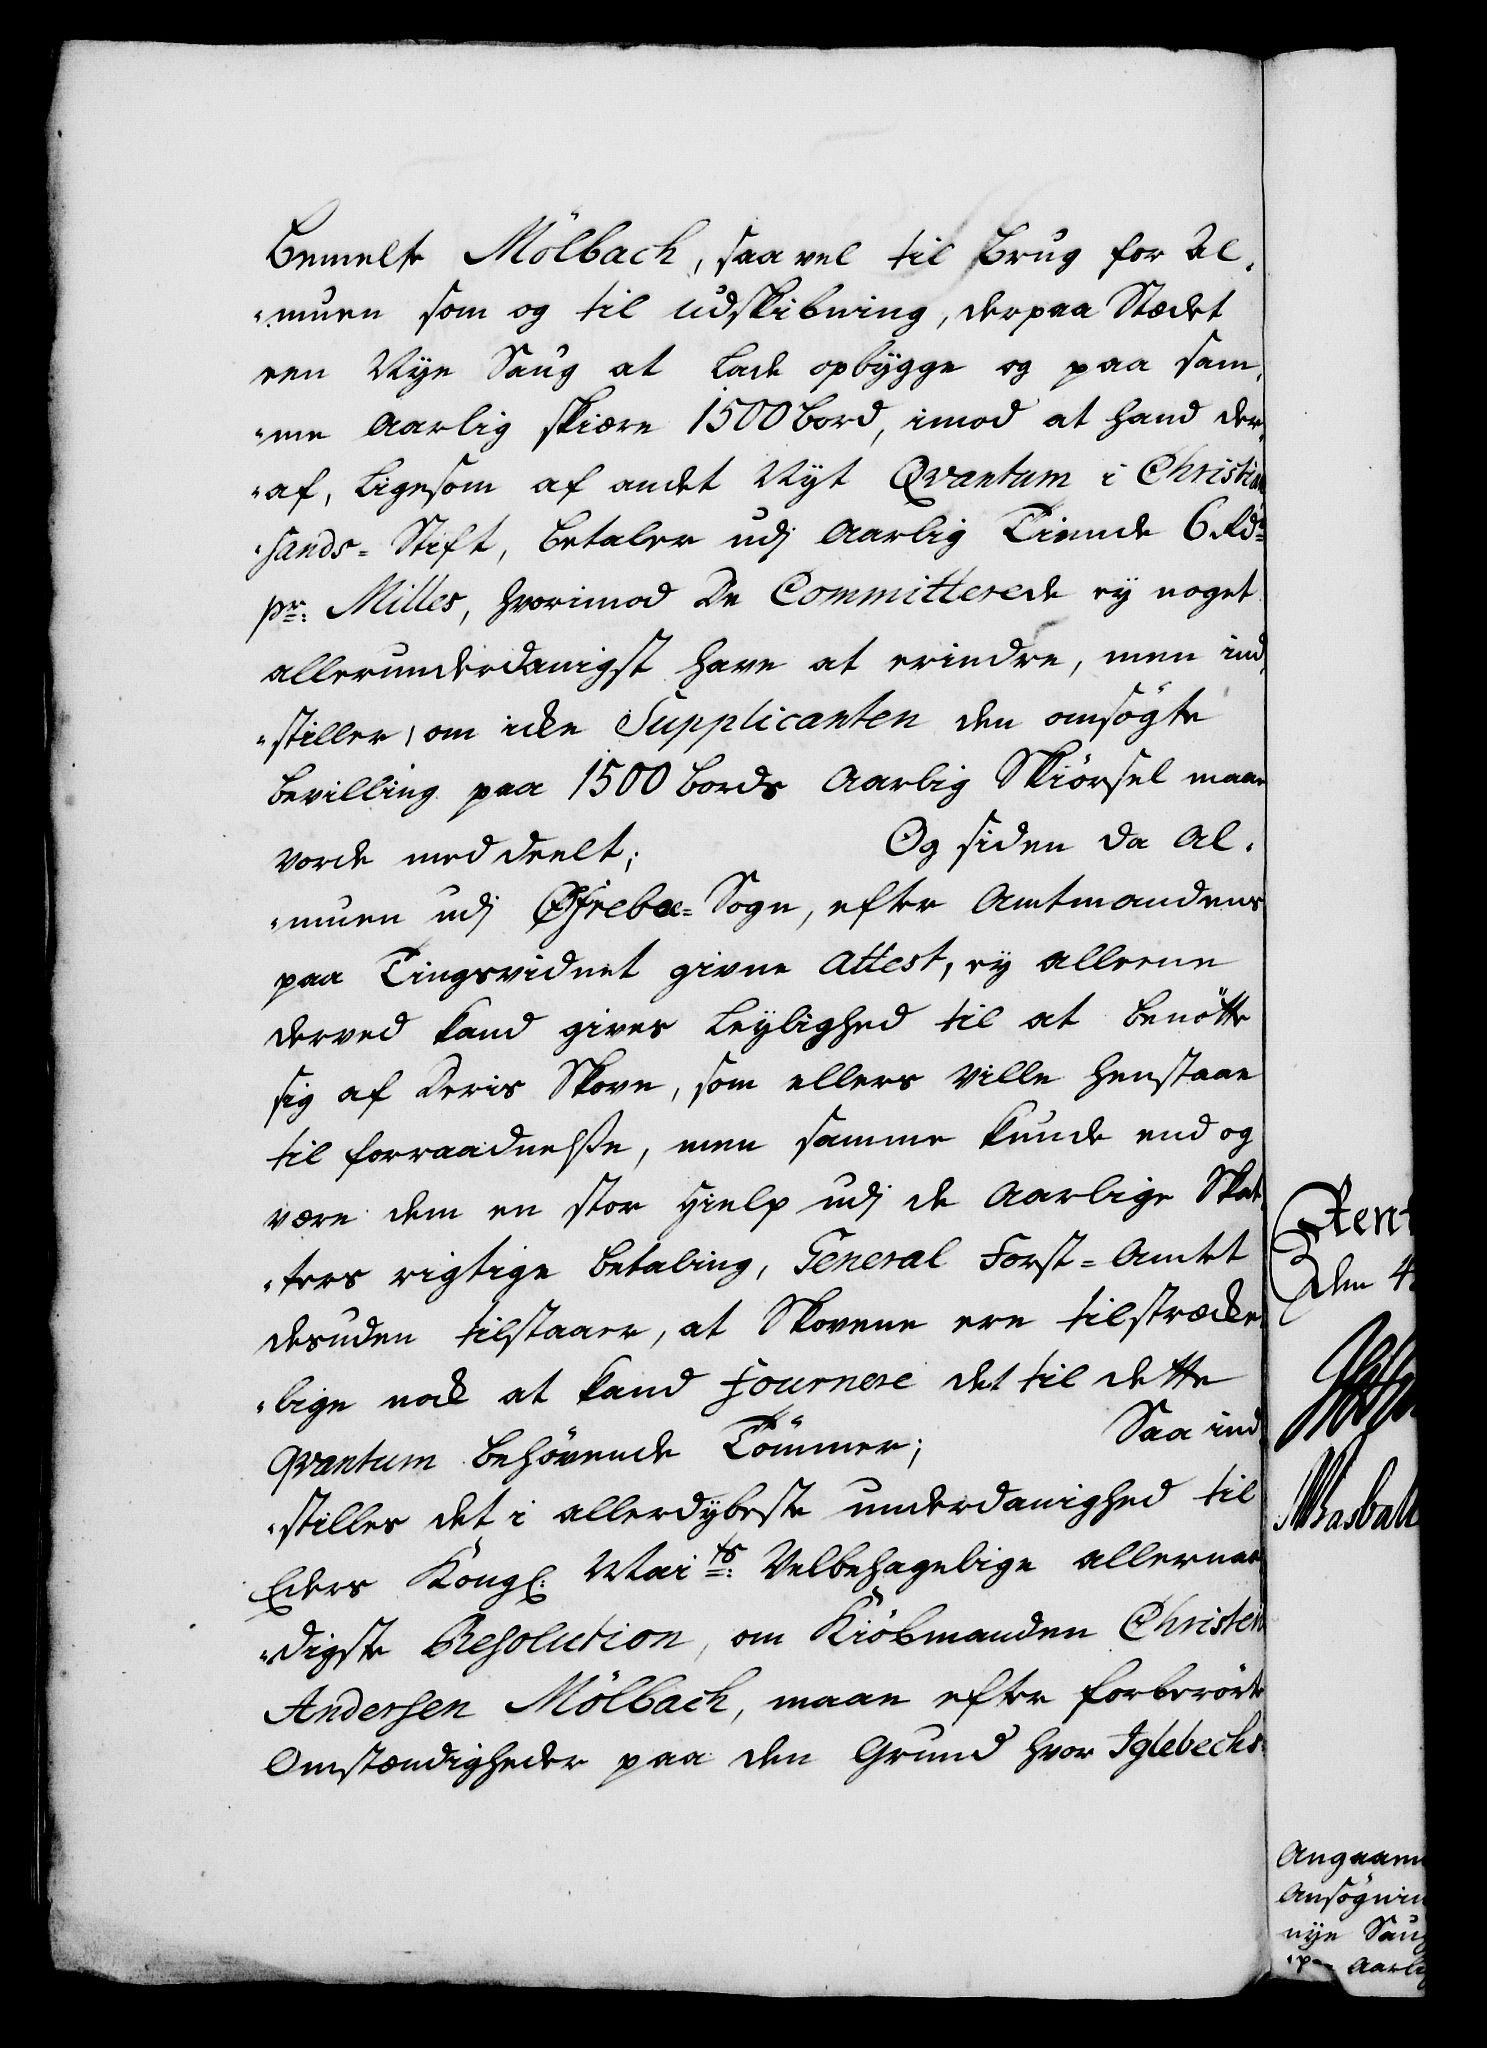 Bemelte Mölbach, saa vel til Brug for Al-
-muen som og til udskibning, der paa Stædet
een Nye Saug at lade opbygge og paa sam-
-me Aarlig skiære 1500 bord, imod at hand der-
-af, ligesom af andet Nyt Qvantum i Christian
-sands-Stift, betaler udj Aarlig Tiende 6 Rdr
pr: Milles, hvorimod De Committerede ey noget
allerunderdanigst have at erindre, men ind-
-stiller, om icke Supplicanten den omsögte
bevilling paa 1500 bords Aarlig Skiörsel maae
vorde meddeelt; Og siden da Al-
-muen udj Øfrebøe-Sogn, efter Amtmandens
paa Tingsvidnet givne Attest, ey alleene
derved kand gives leylighed til at benötte
sig af deris Skove, som ellers ville henstaae
til forraadnelsse, men samme kunde end og
være dem en stor Hielp udj de Aarlige Skat-
-ters rigtige betaling, General Forst-Amtet
desuden tilstaaer, at Skovene ere tilstrække-
-lige nok at kand fournere det til dette
Qvantum behövende Tömmer; Saa ind-
-stilles det i allerdybeste underdanighed til
Eders Kongl: Maits: Velbehagelige allernaa-
-digste Resolution, om Kiöbmanden Christen
Andersen Mölbach, maae efter forberörte
Omstændigheder paa den Grund hvor Iglebechs-
Rent
den 4
Angaaen
Ansögnin
nye Saug
Aarlig